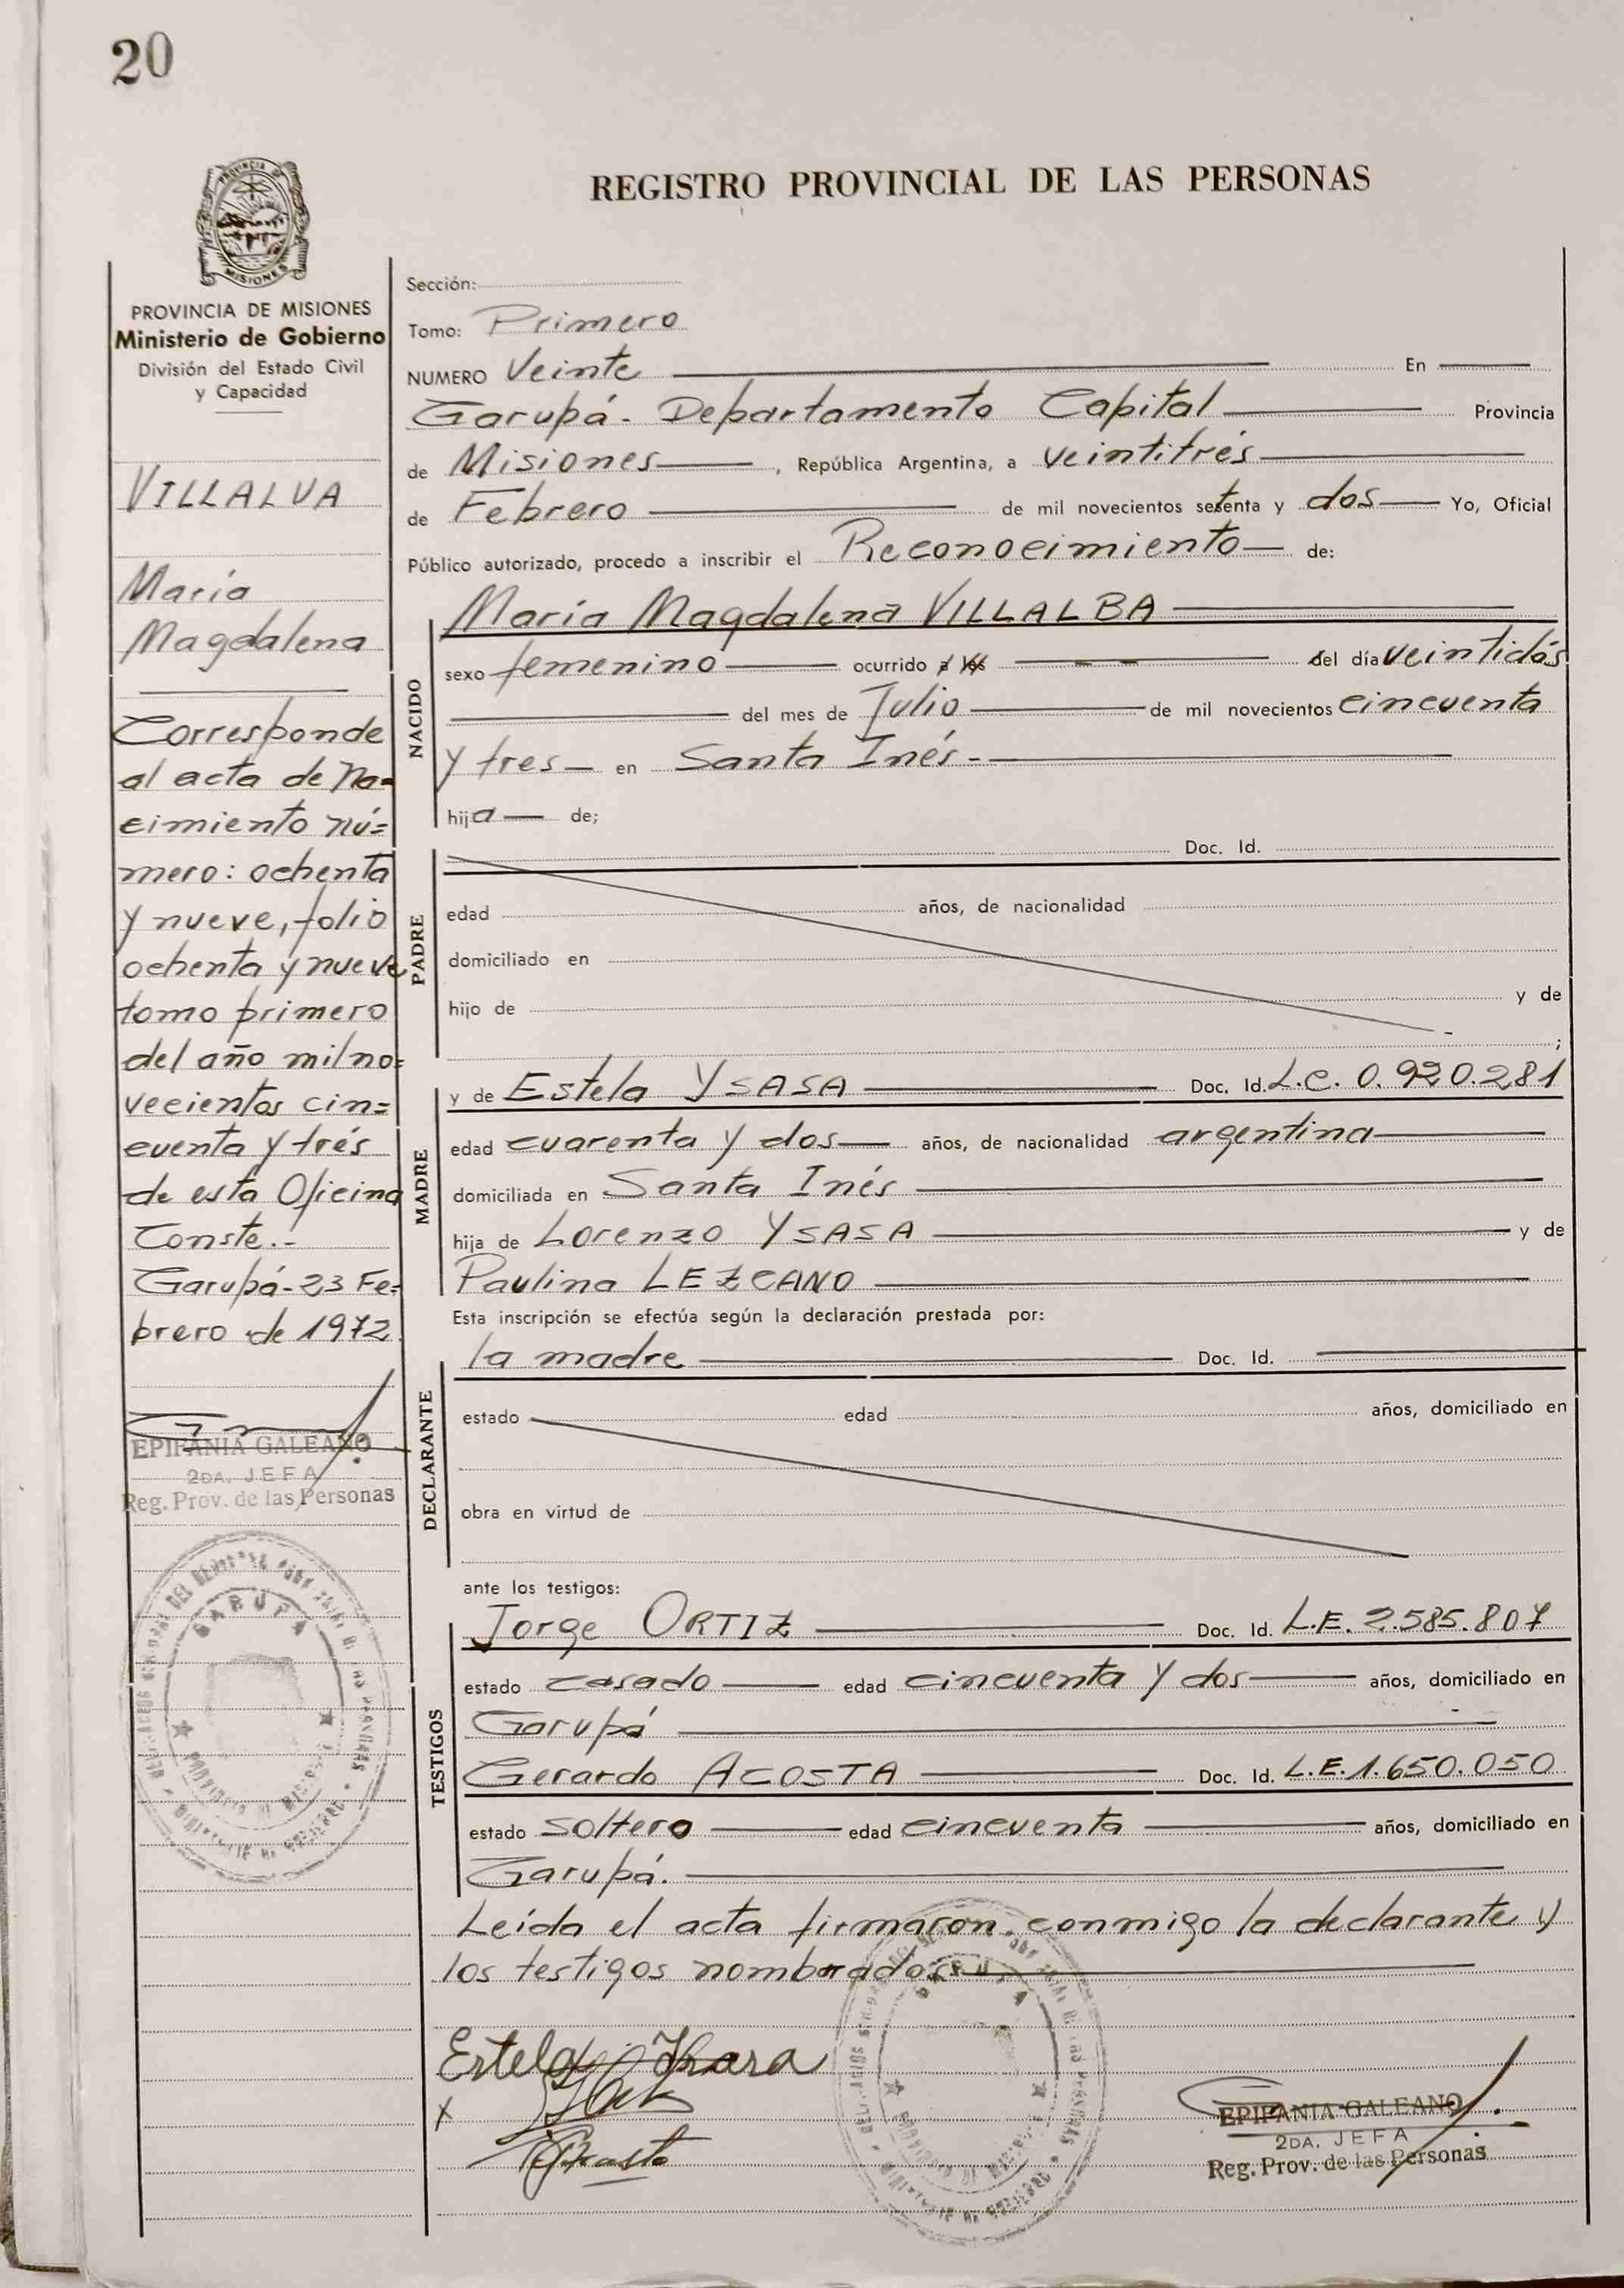 20
REGISTRO PROVINCIAL DE LAS PERSONAS
PROVINCIA DE
MISIONES
PROVINCIA DE MISIONES
Ministerio de Gobierno
División del Estado Civil
y Capacidad
VILLALVA
María
Magdalena
Corresponde
al acta de Na=
cimiento nú=
mero: ochenta
y nueve, folio
ochenta y nueve
tomo primero
del año mil no=
vecientos cin=
cuenta y trés
de esta Oficina
Conste.-
Garupá-23 Fe=
brero de 1972
EPIFANIA GALEANO
2DA. JEFA
Reg. Prov. de las Personas
GARUPA
Sección:
Tomo: Primero
NUMERO Veinte En
Garupá- Departamento Capital Provincia
de Misiones , República Argentina, a veintitrés
de Febrero de mil novecientos setenta y dos Yo, Oficial
Público autorizado, procedo a inscribir el Reconocimiento de:
NACIDO
María Magdalena VILLALBA
sexo femenino ocurrido a las del día veintidós
del mes de Julio de mil novecientos cincuenta
y tres en Santa Inés-
hija de;
PADRE
Doc. Id.
edad años, de nacionalidad
domiciliado en
hijo de y de
;
MADRE
y de Estela YSASA Doc. Id. L.C. 0.920.281
edad cuarenta y dos años, de nacionalidad argentina
domiciliada en Santa Inés
hija de Lorenzo YSASA y de
Paulina LEZCANO
Esta inscripción se efectúa según la declaración prestada por:
DECLARANTE
la madre Doc. Id.
estado edad años, domiciliado en
obra en virtud de
ante los testigos:
TESTIGOS
Jorge ORTIZ Doc. Id. L.E. 2.585.807
estado casado edad cincuenta y dos años, domiciliado en
Garupá
Gerardo ACOSTA Doc. Id. L.E. 1.650.050
estado soltero edad cincuenta años, domiciliado en
Garupá.
Leída el acta firmaron conmigo la declarante y
los testigos nombrados
Estela
x
EPIFANIA GALEANO
2DA. JEFA
Reg. Prov. de las Personas